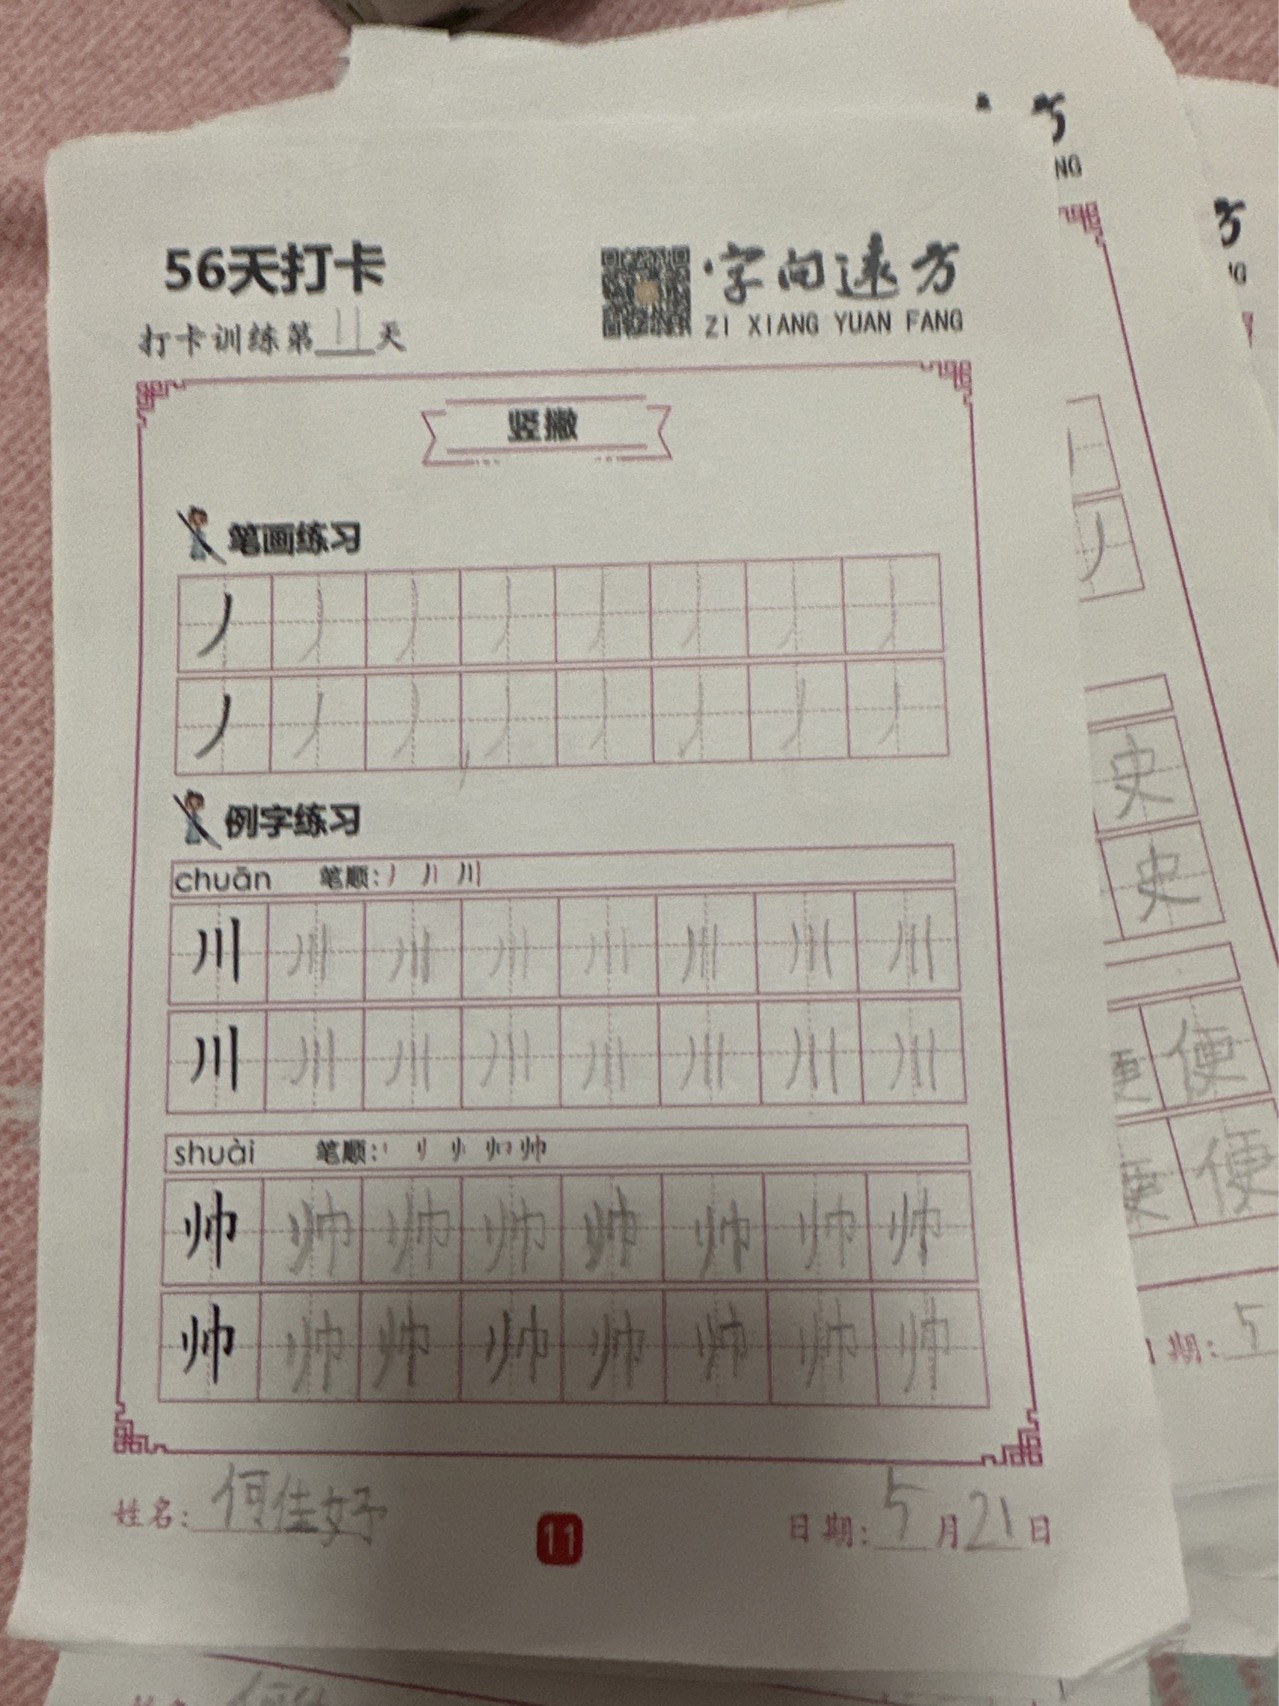 56天打卡
打卡训练第11天
字向远方
ZI XIANG YUAN FANG
竖撇
笔画练习
丿 丿 丿 丿 丿 丿 丿 丿
丿 丿 丿 丿 丿 丿 丿 丿
例字练习
chuān 笔顺: 丿 川
川 川 川 川 川 川 川 川
川 川 川 川 川 川 川 川
shuài 笔顺: 帅
帅 帅 帅 帅 帅 帅 帅 帅
帅 帅 帅 帅 帅 帅 帅 帅
姓名: 何佳好
11
日期: 5月21日
方
NG
方
丿
史
史
便 便
便 便
期: 5